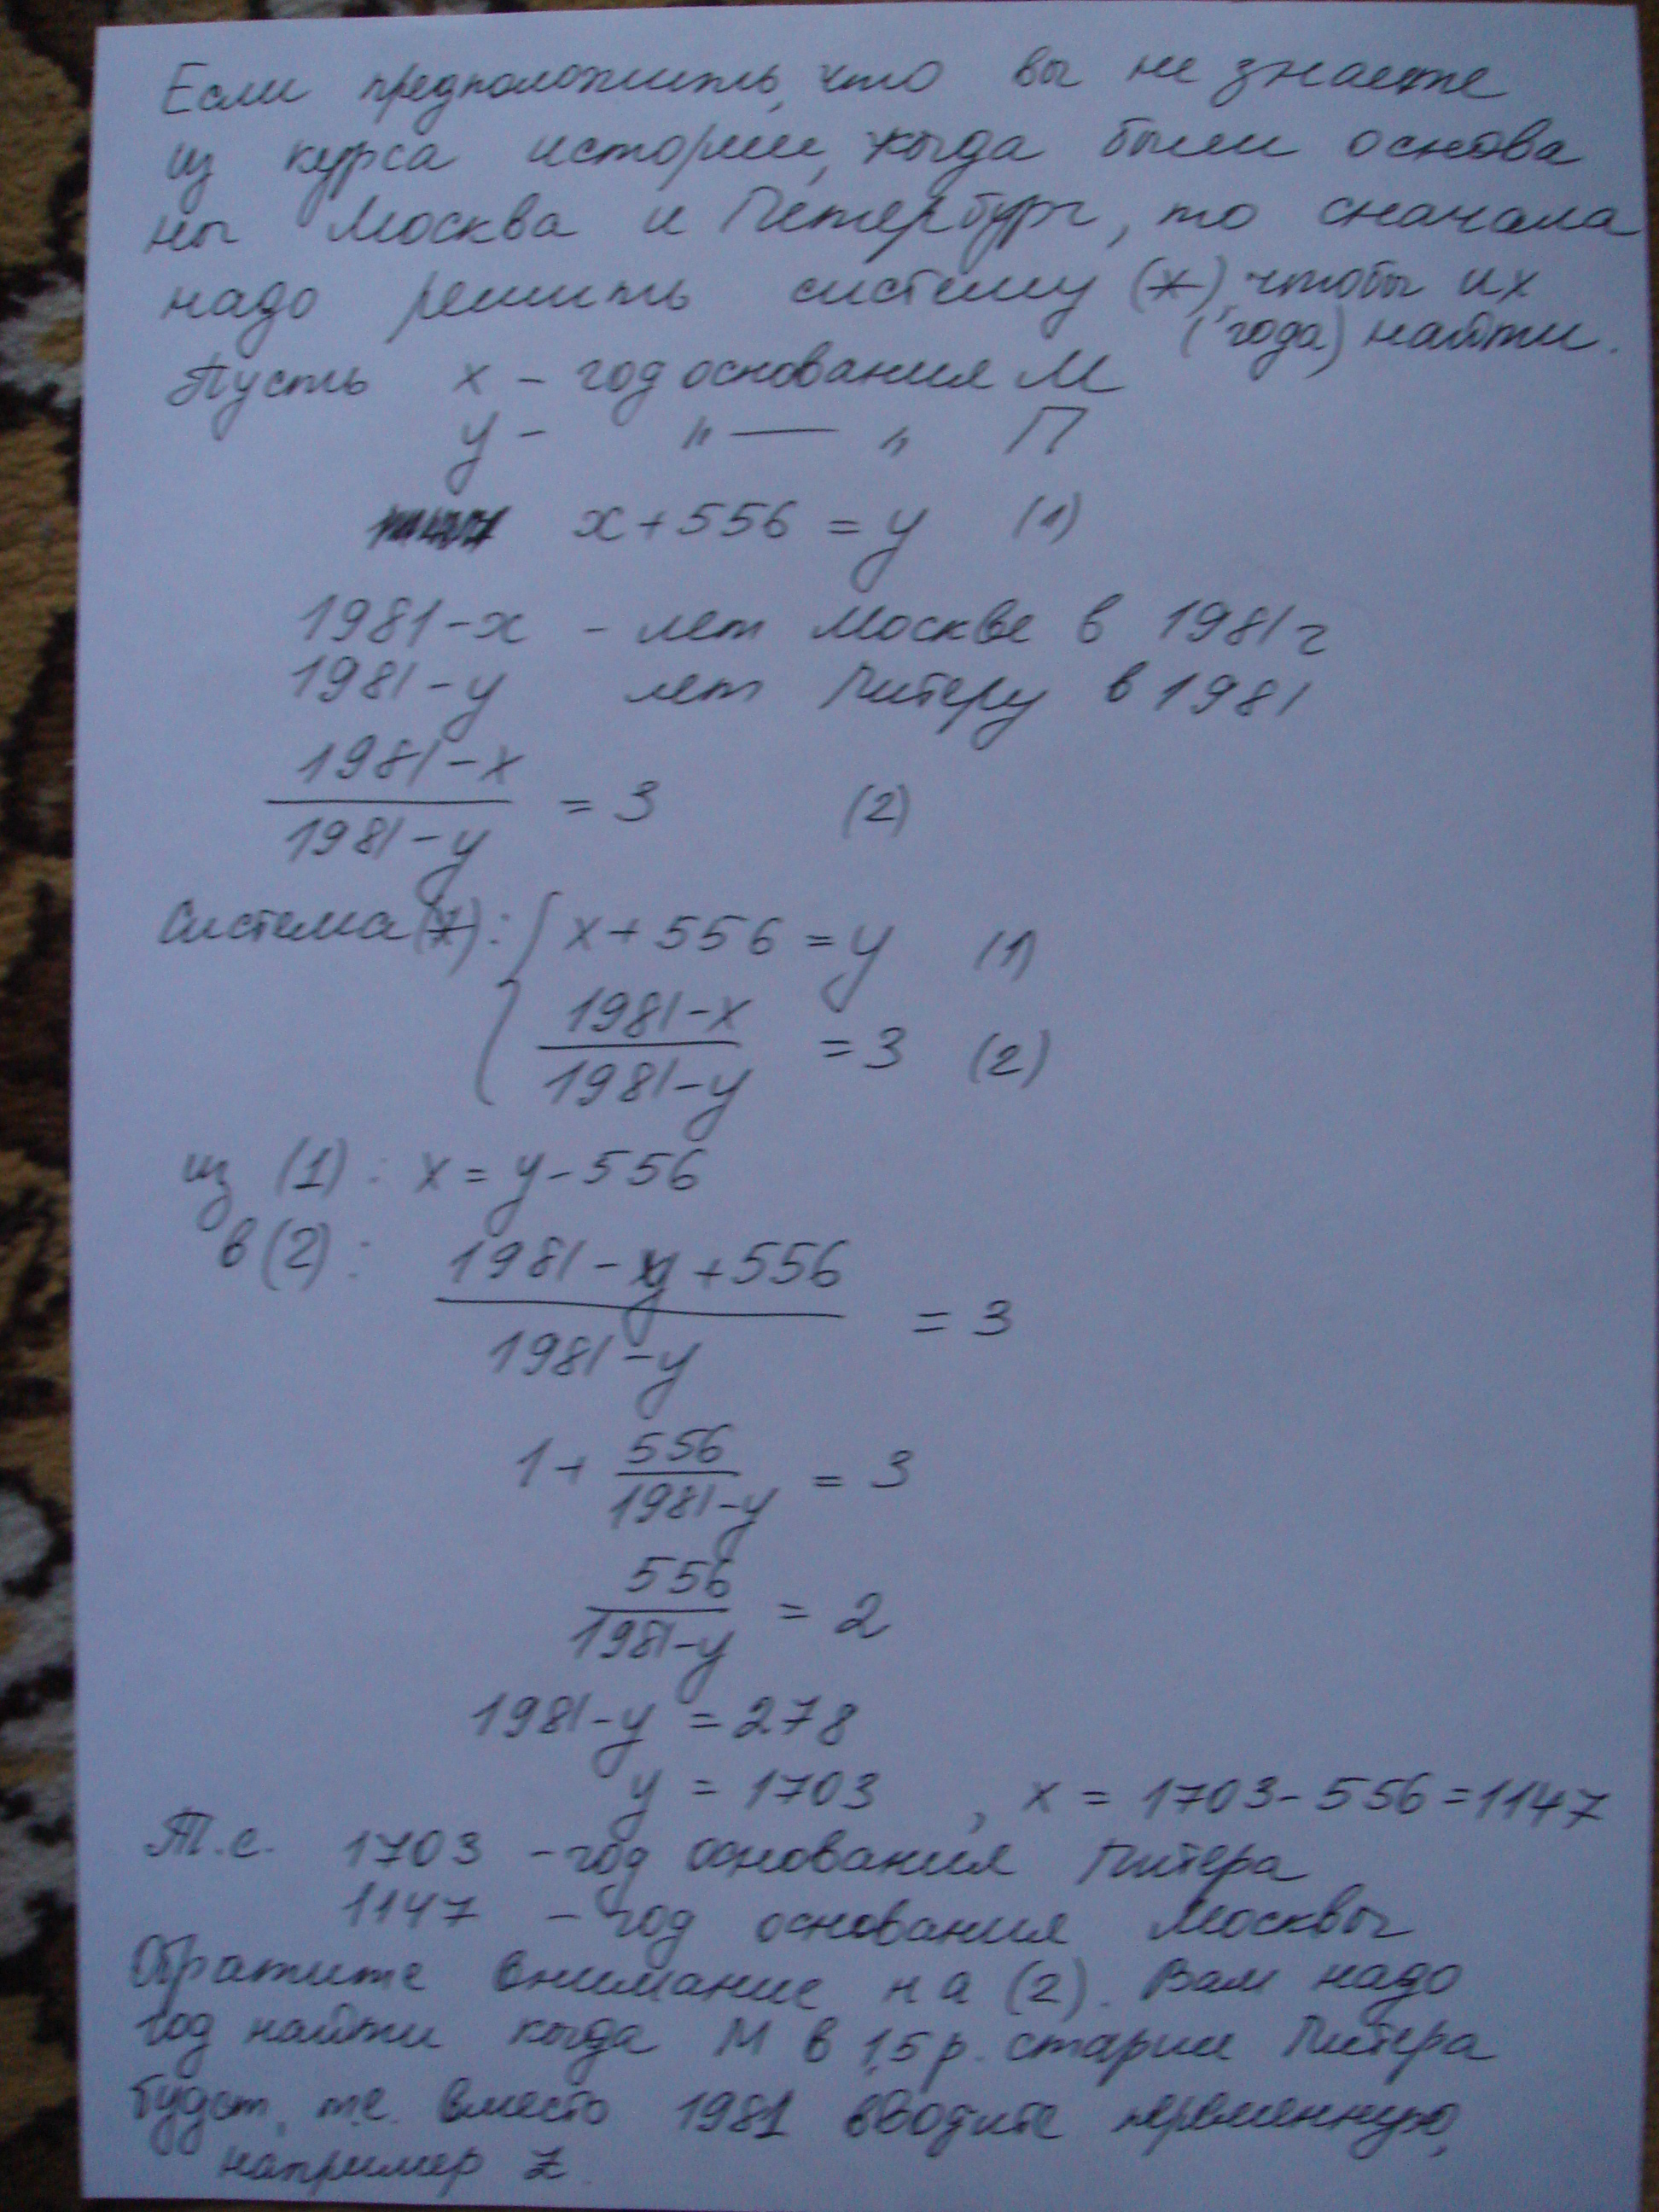 Если предположить, что вы не знаете
из курса истории, когда были основа
ны Москва и Петербург, то сначала
надо решить систему (*), чтобы их
(года) найти.
Пусть x – год основания М
y – " — " П
x + 556 = y (1)
1981 - x - лет Москве в 1981 г
1981 - y лет Питеру в 1981
1981 - x
= 3 (2)
1981 - y
Система (*): { x + 556 = y (1)
1981 - x
= 3 (2)
1981 - y
из (1): x = y - 556
в (2): 1981 - y + 556
= 3
1981 - y
1 + 556 / 1981 - y = 3
556 / 1981 - y = 2
1981 - y = 278
y = 1703, x = 1703 - 556 = 1147
Т.е. 1703 - год основания Питера
1147 - год основания Москвы
Обратите внимание на (2). Вам надо
год найти когда М в 1,5 р. старше Питера
будет, т.е. вместо 1981 вводите переменную,
например z.